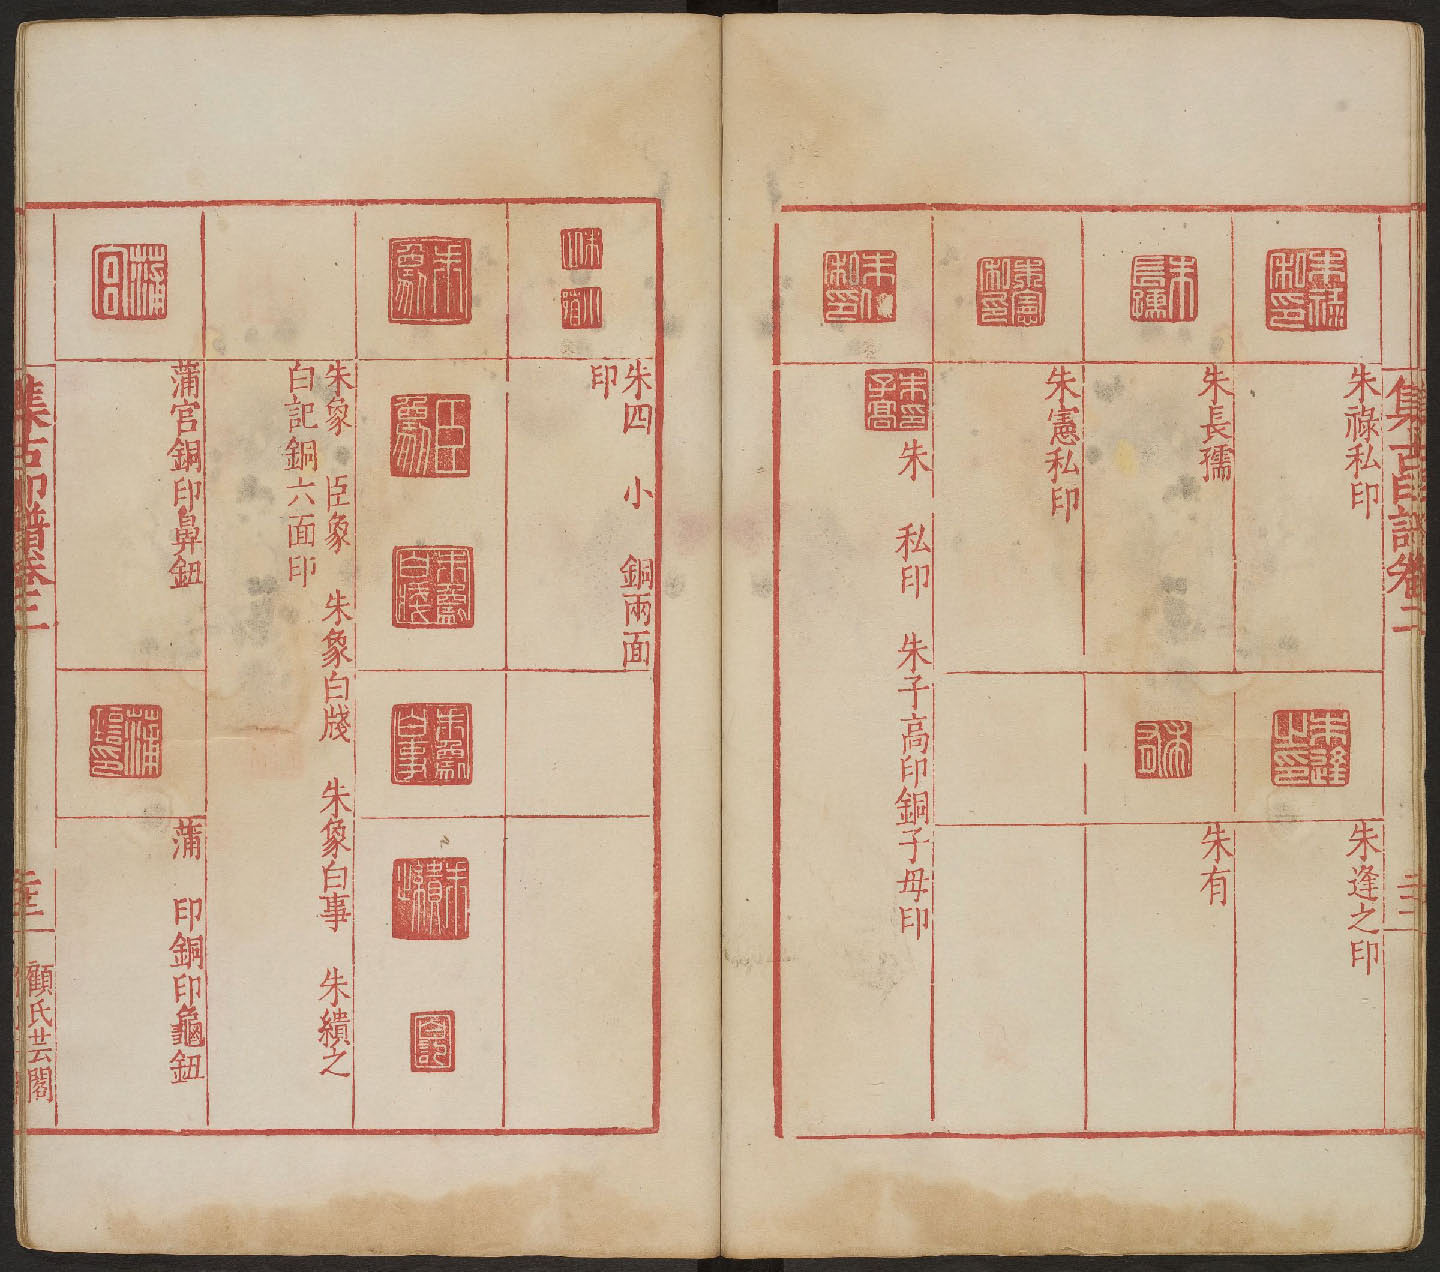 集古印譜卷二
二十二
朱祿私印
朱逢之印
朱長孺
朱有
朱憲私印
朱　私印　朱子高印銅子母印
朱四　小　銅兩面
印
朱象　臣象　朱象白牋　朱象白事　朱繢之
白記銅六面印
蒲宮銅印鼻鈕
蒲　印銅印龜鈕
集古印譜卷二
二十三
顧氏芸閣